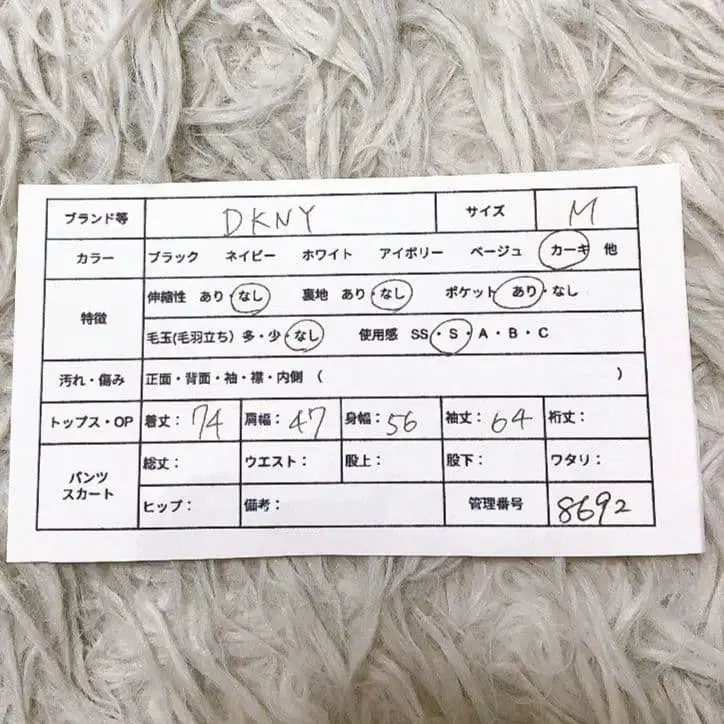 ブランド等 DKNY サイズ M
カラー ブラック ネイビー ホワイト アイボリー ベージュ カーキ 他
特徴 伸縮性 あり・なし 裏地 あり・なし ポケット あり・なし
毛玉(毛羽立ち) 多・少・なし 使用感 SS・S・A・B・C
汚れ・傷み 正面・背面・袖・襟・内側 ( )
トップス・OP 着丈: 74 肩幅: 47 身幅: 56 袖丈: 64 裄丈:
パンツ スカート 総丈: ウエスト: 股上: 股下: ワタリ:
ヒップ: 備考: 管理番号 8692